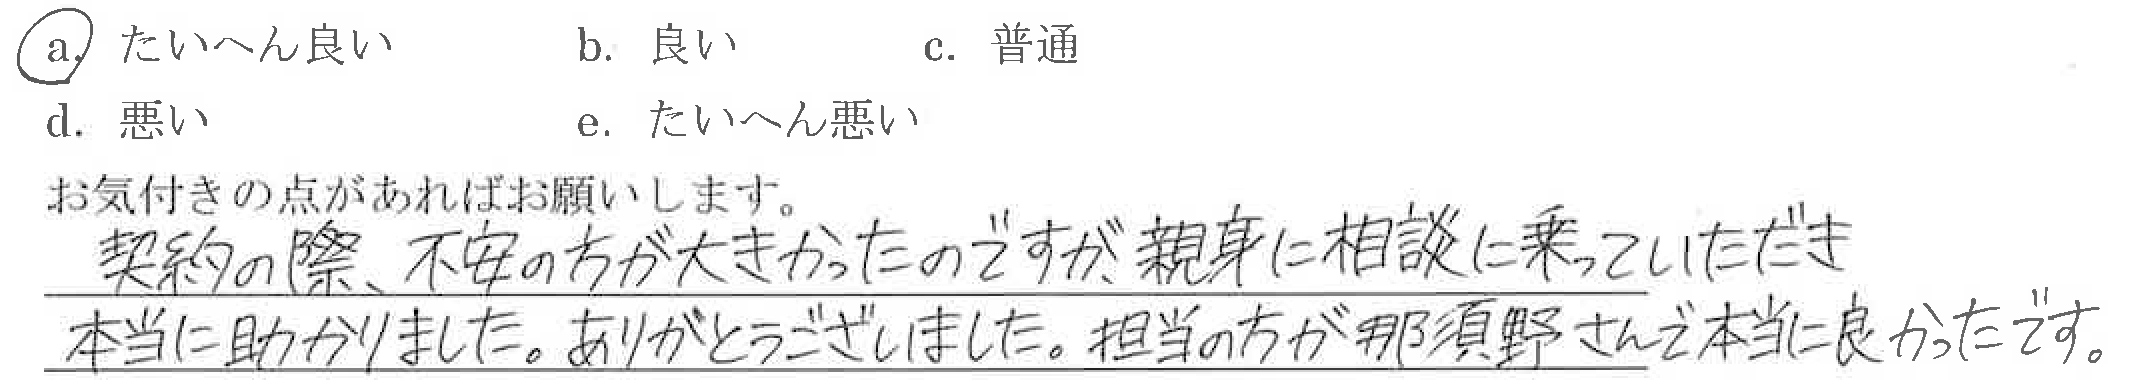 a. たいへん良い b. 良い c. 普通
d. 悪い e. たいへん悪い
お気付きの点があればお願いします。
契約の際、不安の方が大きかったのですが、親身に相談に乗っていただき
本当に助かりました。ありがとうございました。担当の方が那須野さんで本当に良かったです。